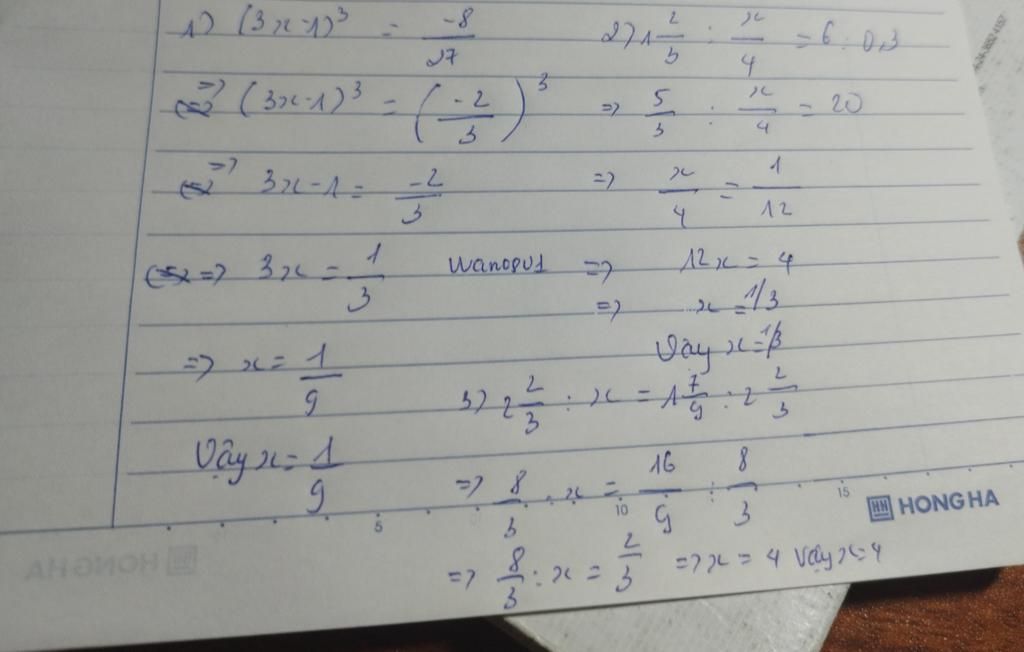 1) (3x-1)³ = -8/27
=> (3x-1)³ = (-2/3)³
=> 3x-1 = -2/3
=> 3x = 1/3
=> x = 1/9
Vậy x = 1/9
wanopu1
2) 1 2/3 : x/4 = 6 : 0,3
=> 5/3 : x/4 = 20
=> x/4 = 1/12
=> 12x = 4
=> x = 1/3
Vậy x = 1/3
3) 2 2/3 : x = 1 7/9 : 2 2/3
=> 8/3 : x = 16/9 : 8/3
=> 8/3 : x = 2/3 => x = 4 Vậy x = 4
5 10 15
HONG HA